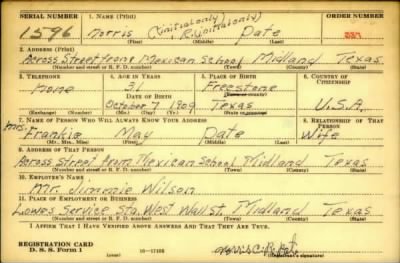 SERIAL NUMBER 1. NAME (Print) ORDER NUMBER
1596 Norris C (initial only) R (initial only) Pate
(First) (Middle) (Last)
2. ADDRESS (Print)
Across Street from Mexican School Midland Texas
(Number and street or R. F. D. number) (Town) (County) (State)
3. TELEPHONE 4. AGE IN YEARS 5. PLACE OF BIRTH 6. COUNTRY OF CITIZENSHIP
None 31 Freestone
DATE OF BIRTH (Town or county)
October 7 1909 Texas U.S.A.
(Exchange) (Number) (Mo.) (Day) (Yr.) (State or country)
7. NAME OF PERSON WHO WILL ALWAYS KNOW YOUR ADDRESS 8. RELATIONSHIP OF THAT PERSON
Mrs. Frankie May Pate Wife
(Mr., Mrs., Miss) (First) (Middle) (Last)
9. ADDRESS OF THAT PERSON
Across Street from Mexican School Midland Texas
(Number and street or R. F. D. number) (Town) (County) (State)
10. EMPLOYER'S NAME
Mr. Jimmie Wilson
11. PLACE OF EMPLOYMENT OR BUSINESS
Lowes Service Sta. West Wall st. Midland Texas
(Number and street or R. F. D. number) (Town) (County) (State)
I AFFIRM THAT I HAVE VERIFIED ABOVE ANSWERS AND THAT THEY ARE TRUE.
REGISTRATION CARD
D. S. S. Form 1 16-17105
(Registrant's signature)